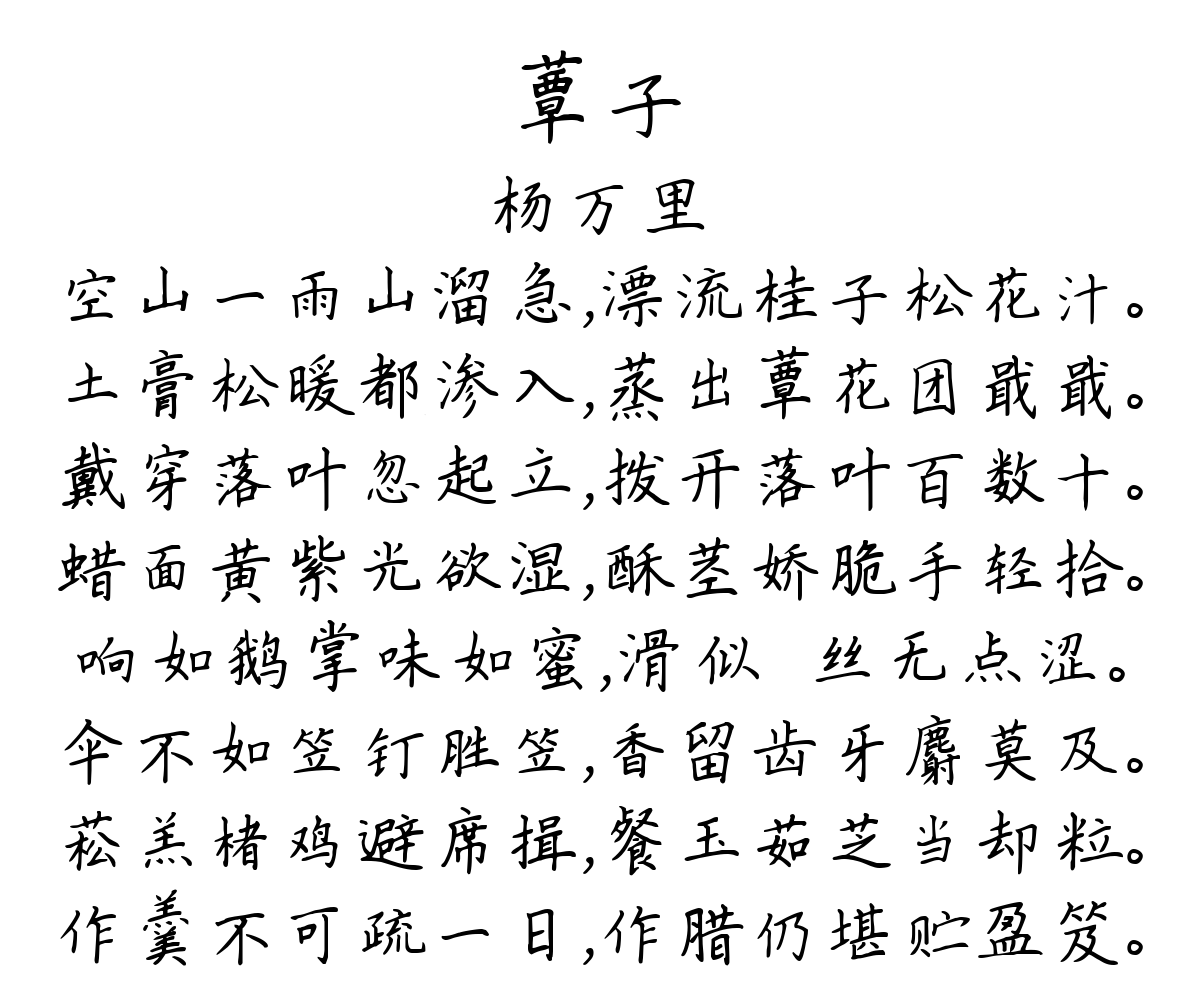 蕈子
杨万里
空山一雨山溜急,漂流桂子松花汁。
土膏松暖都渗入,蒸出蕈花团戢戢。
戴穿落叶忽起立,拨开落叶百数十。
蜡面黄紫光欲湿,酥茎娇脆手轻拾。
响如鹅掌味如蜜,滑似 丝无点涩。
伞不如笠钉胜笠,香留齿牙麝莫及。
菘羔楮鸡避席揖,餐玉茹芝当却粒。
作羹不可疏一日,作腊仍堪贮盈笈。